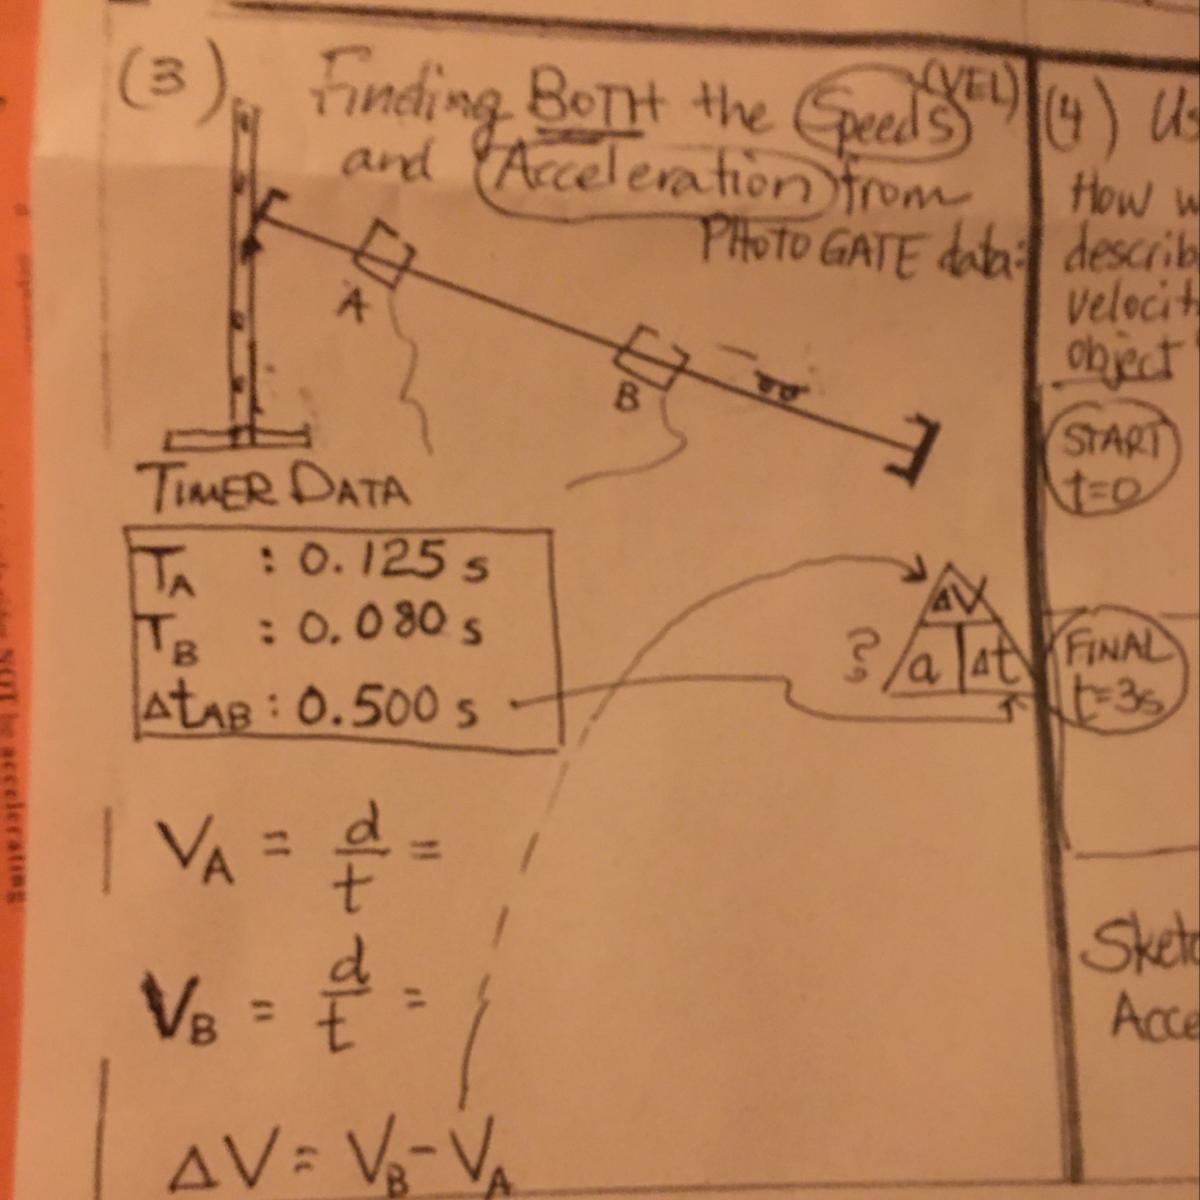 (3) Finding BOTH the Speeds (VEL)
and Acceleration from
PHOTO GATE data:
A
B
TIMER DATA
TA : 0.125 s
TB : 0.080 s
ΔtAB : 0.500 s
ΔV
? a Δt
VA = d/t =
VB = d/t =
ΔV = VB - VA
(4) Us
How w
describ
velocit
object
START
t=0
FINAL
t=3s
Sketc
Acce
NOT be accelerating